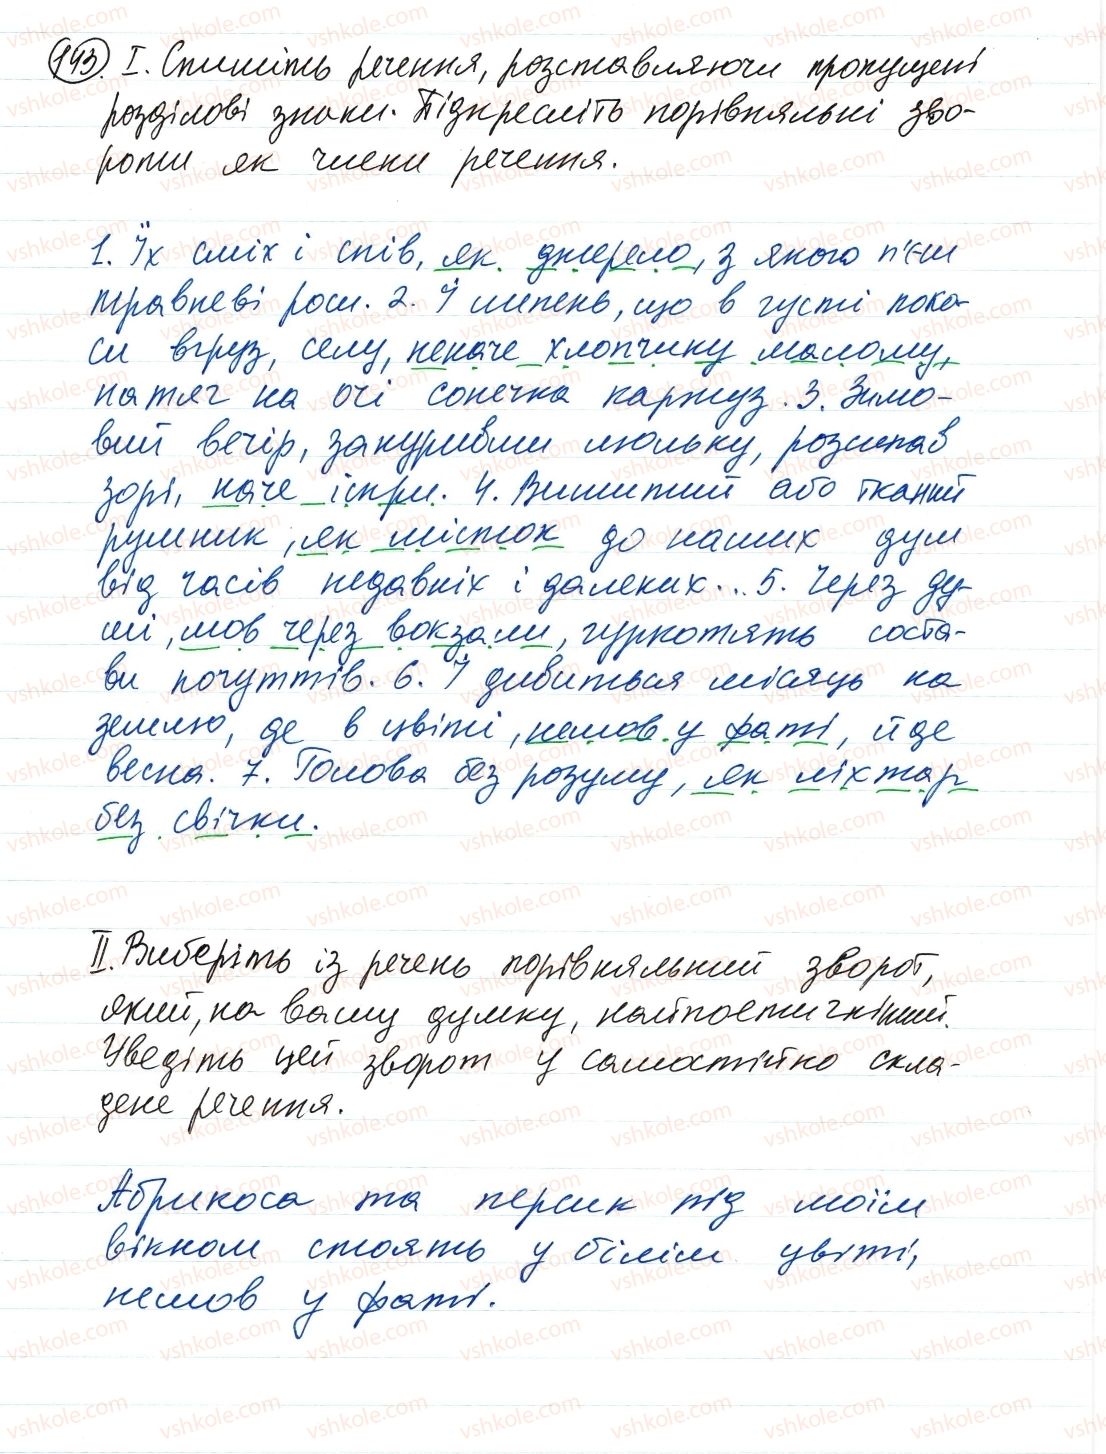 143. I. Спишіть речення, розставляючи пропущені
розділові знаки. Підкресліть порівняльні зво-
роти як члени речення.
1. Їх сміх і спів, як джерело, з якого п'єш
травневі роси. 2. Й липень, що в густі поко-
си вгруз, селу, неначе хлопчику малому,
натяг на очі сонечка картуз. 3. Зимо-
вий вечір, закуривши люльку, розсипав
зорі, наче іскри. 4. Вишитий або тканий
рушник, як місток до наших дум
від часів недавніх і далеких... 5. Через ду-
ші, мов через вокзали, гуркотять соста-
ви почуттів. 6. Й дивиться місяць на
землю, де в цвіті, немов у фаті, йде
весна. 7. Голова без розуму, як ліхтар
без свічки.
II. Виберіть із речень порівняльний зворот,
який, на вашу думку, найпоетичніший.
Уведіть цей зворот у самостійно скла-
дене речення.
Абрикоса та персик під моїм
вікном стоять у білім цвіті,
немов у фаті.